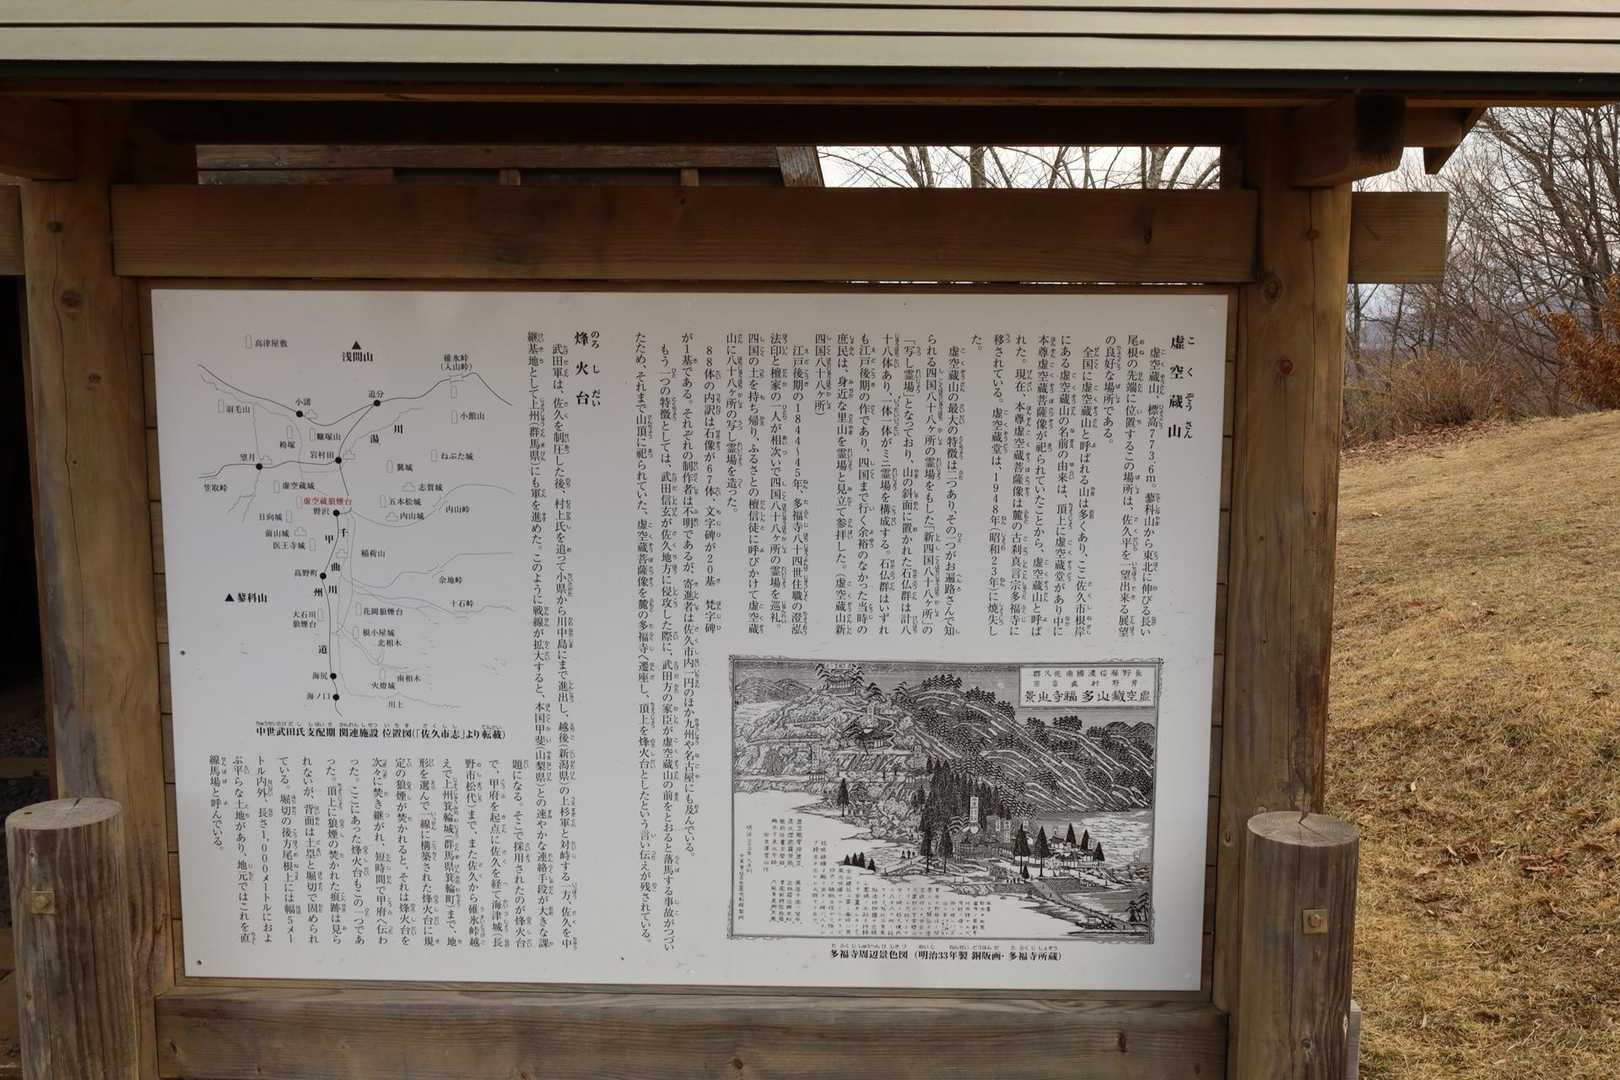 虚空蔵山
虚空蔵山、標高773・6m。蓼科山から東北に伸びる長い
尾根の先端に位置するこの場所は、佐久平を一望出来る展望
の良好な場所である。
全国に虚空蔵山と呼ばれる山は多くあり、ここ佐久市根岸
にある虚空蔵山の名前の由来は、頂上に虚空蔵堂があり中に
本尊虚空蔵菩薩像が祀られていたことから、虚空蔵山と呼ば
れた。現在、本尊虚空蔵菩薩像は麓の古刹真言宗多福寺に
移されている。虚空蔵堂は、1948年(昭和23年)に焼失し
た。
虚空蔵山の最大の特徴は二つあり、その一つがお遍路さんで知
られる四国八十八ヶ所の霊場をもした「新四国八十八ヶ所」の
「写し霊場」となっており、山の斜面に置かれた石仏群は計八
十八体あり、一体一体がミニ霊場を構成する。石仏群はいずれ
も江戸後期の作であり、四国まで行く余裕のなかった当時の
庶民は、身近な里山を霊場と見立て参拝した。(虚空蔵山新
四国八十八ヶ所)
江戸後期の1844~45年、多福寺八十四世住職の澄弘
法印と檀家の一人が相次いで四国八十八ヶ所の霊場を巡礼。
四国の土を持ち帰り、ふるさとの檀信徒に呼びかけて虚空蔵
山に八十八ヶ所の写し霊場を造った。
88体の内訳は石像が67体、文字碑が20基、梵字碑
が1基である。それぞれの制作者は不明であるが、寄進者は佐久市内一円のほか九州や名古屋にも及んでいる。
もう一つの特徴としては、武田信玄が佐久地方に侵攻した際に、武田方の家臣が虚空蔵山の前をとおると落馬する事故がつづい
たため、それまで山頂に祀られていた、虚空蔵菩薩像を麓の多福寺へ遷座し、頂上を烽火台としたという言い伝えが残されている。
烽火台
武田軍は、佐久を制圧した後、村上氏を追って小県から川中島にまで進出し、越後(新潟県)の上杉軍と対峙する一方、佐久を中
継基地として上州(群馬県)にも軍を進めた。このように戦線が拡大すると、本国甲斐(山梨県)との速やかな連絡手段が大きな課
題になる。そこで採用されたのが烽火台
で、甲府を起点に佐久を経て海津城(長
野市松代)まで、また佐久から碓氷峠越
えで上州箕輪城(群馬県箕輪町)まで、地
形を選んで一線に構築された烽火台に規
定の狼煙が焚かれると、それは烽火台を
次々に焚き継がれ、短時間で甲府へ伝わ
った。ここにあった烽火台もこの一つであ
った。頂上に狼煙の焚かれた痕跡は見ら
れないが、背面は土塁と堀切で固められ
ている。堀切の後方尾根上には幅5メー
トル内外、長さ1,000メートルにおよ
ぶ平らな土地があり、地元ではこれを直
線馬場と呼んでいる。
高津屋敷
浅間山
碓氷峠
(入山峠)
羽毛山
小諸
追分
小館山
湯川
袴塚
龍塚山
望月
岩村田
ねぶた城
翼城
笠取峠
虚空蔵城
志賀城
虚空蔵狼煙台
五本松城
野沢
内山峠
日向城
内山城
前山城
医王寺城
千曲川
稲荷山
高野町
甲州道
余地峠
蓼科山
十石峠
大石川
狼煙台
花岡狼煙台
根小屋城
北相木
海尻
南相木
火燈城
海ノ口
川上
中世武田氏支配期 関連施設 位置図(「佐久市志」より転載)
長野縣信濃國南佐久郡
岸野村真言宗
虚空蔵山多福寺山景
多福寺周辺景色図 (明治33年製 銅版画・多福寺所蔵)